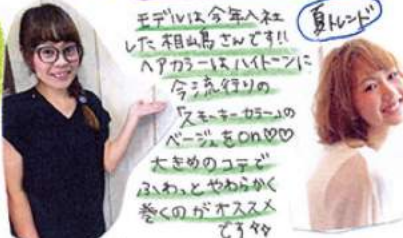 モデルは今年入社
した相山鳥さんです!!
ヘアカラーはハイトーンに
今流行りの
「スモーキーカラー」の
ベージュをon♡♡
大きめのコテで
ふわっとやわらかく
巻くのがオススメ
です
夏トレンド